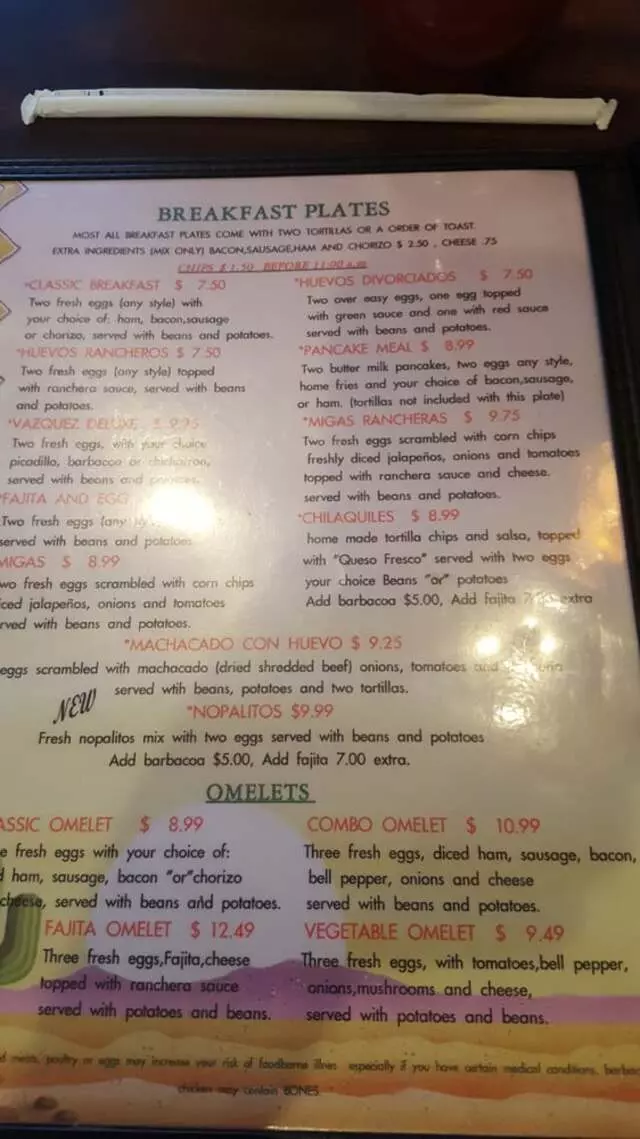 BREAKFAST PLATES
MOST ALL BREAKFAST PLATES COME WITH TWO TORTILLAS OR A ORDER OF TOAST.
EXTRA INGREDIENTS (MIX ONLY) BACON,SAUSAGE,HAM AND CHORIZO $ 2.50 , CHEESE .75
CHIPS $ 1.50 BEFORE 11:00 a.m
*CLASSIC BREAKFAST $ 7.50
Two fresh eggs (any style) with
your choice of: ham, bacon,sausage
or chorizo, served with beans and potatoes.
*HUEVOS RANCHEROS $ 7.50
Two fresh eggs (any style) topped
with ranchera sauce, served with beans
and potatoes.
*VAZQUEZ DELUXE $ 9.25
Two fresh eggs, with your choice
picadillo, barbacoa or chicharron,
served with beans and potatoes.
*FAJITA AND EGG
Two fresh eggs (any
served with beans and potatoes
MIGAS $ 8.99
wo fresh eggs scrambled with corn chips
iced jalapeños, onions and tomatoes
rved with beans and potatoes.
*HUEVOS DIVORCIADOS $ 7.50
Two over easy eggs, one egg topped
with green sauce and one with red sauce
served with beans and potatoes.
*PANCAKE MEAL $ 8.99
Two butter milk pancakes, two eggs any style,
home fries and your choice of bacon,sausage,
or ham. (tortillas not included with this plate)
*MIGAS RANCHERAS $ 9.75
Two fresh eggs scrambled with corn chips
freshly diced jalapeños, onions and tomatoes
topped with ranchera sauce and cheese.
served with beans and potatoes.
*CHILAQUILES $ 8.99
home made tortilla chips and salsa, topped
with "Queso Fresco" served with two eggs
your choice Beans "or" potatoes
Add barbacoa $5.00, Add fajita extra
*MACHACADO CON HUEVO $ 9.25
eggs scrambled with machacado (dried shredded beef) onions, tomatoes and
served wtih beans, potatoes and two tortillas.
NEW
*NOPALITOS $9.99
Fresh nopalitos mix with two eggs served with beans and potatoes
Add barbacoa $5.00, Add fajita 7.00 extra.
OMELETS
ASSIC OMELET $ 8.99
e fresh eggs with your choice of:
d ham, sausage, bacon "or"chorizo
cheese, served with beans and potatoes.
FAJITA OMELET $ 12.49
Three fresh eggs,Fajita,cheese
topped with ranchera sauce
served with potatoes and beans.
COMBO OMELET $ 10.99
Three fresh eggs, diced ham, sausage, bacon,
bell pepper, onions and cheese
served with beans and potatoes.
VEGETABLE OMELET $ 9.49
Three fresh eggs, with tomatoes,bell pepper,
onions,mushrooms and cheese,
served with potatoes and beans.
d meats, poultry or eggs may increase your risk of foodborne illnes especially if you have certain medical conditions, barbac
chicken may contain BONES.